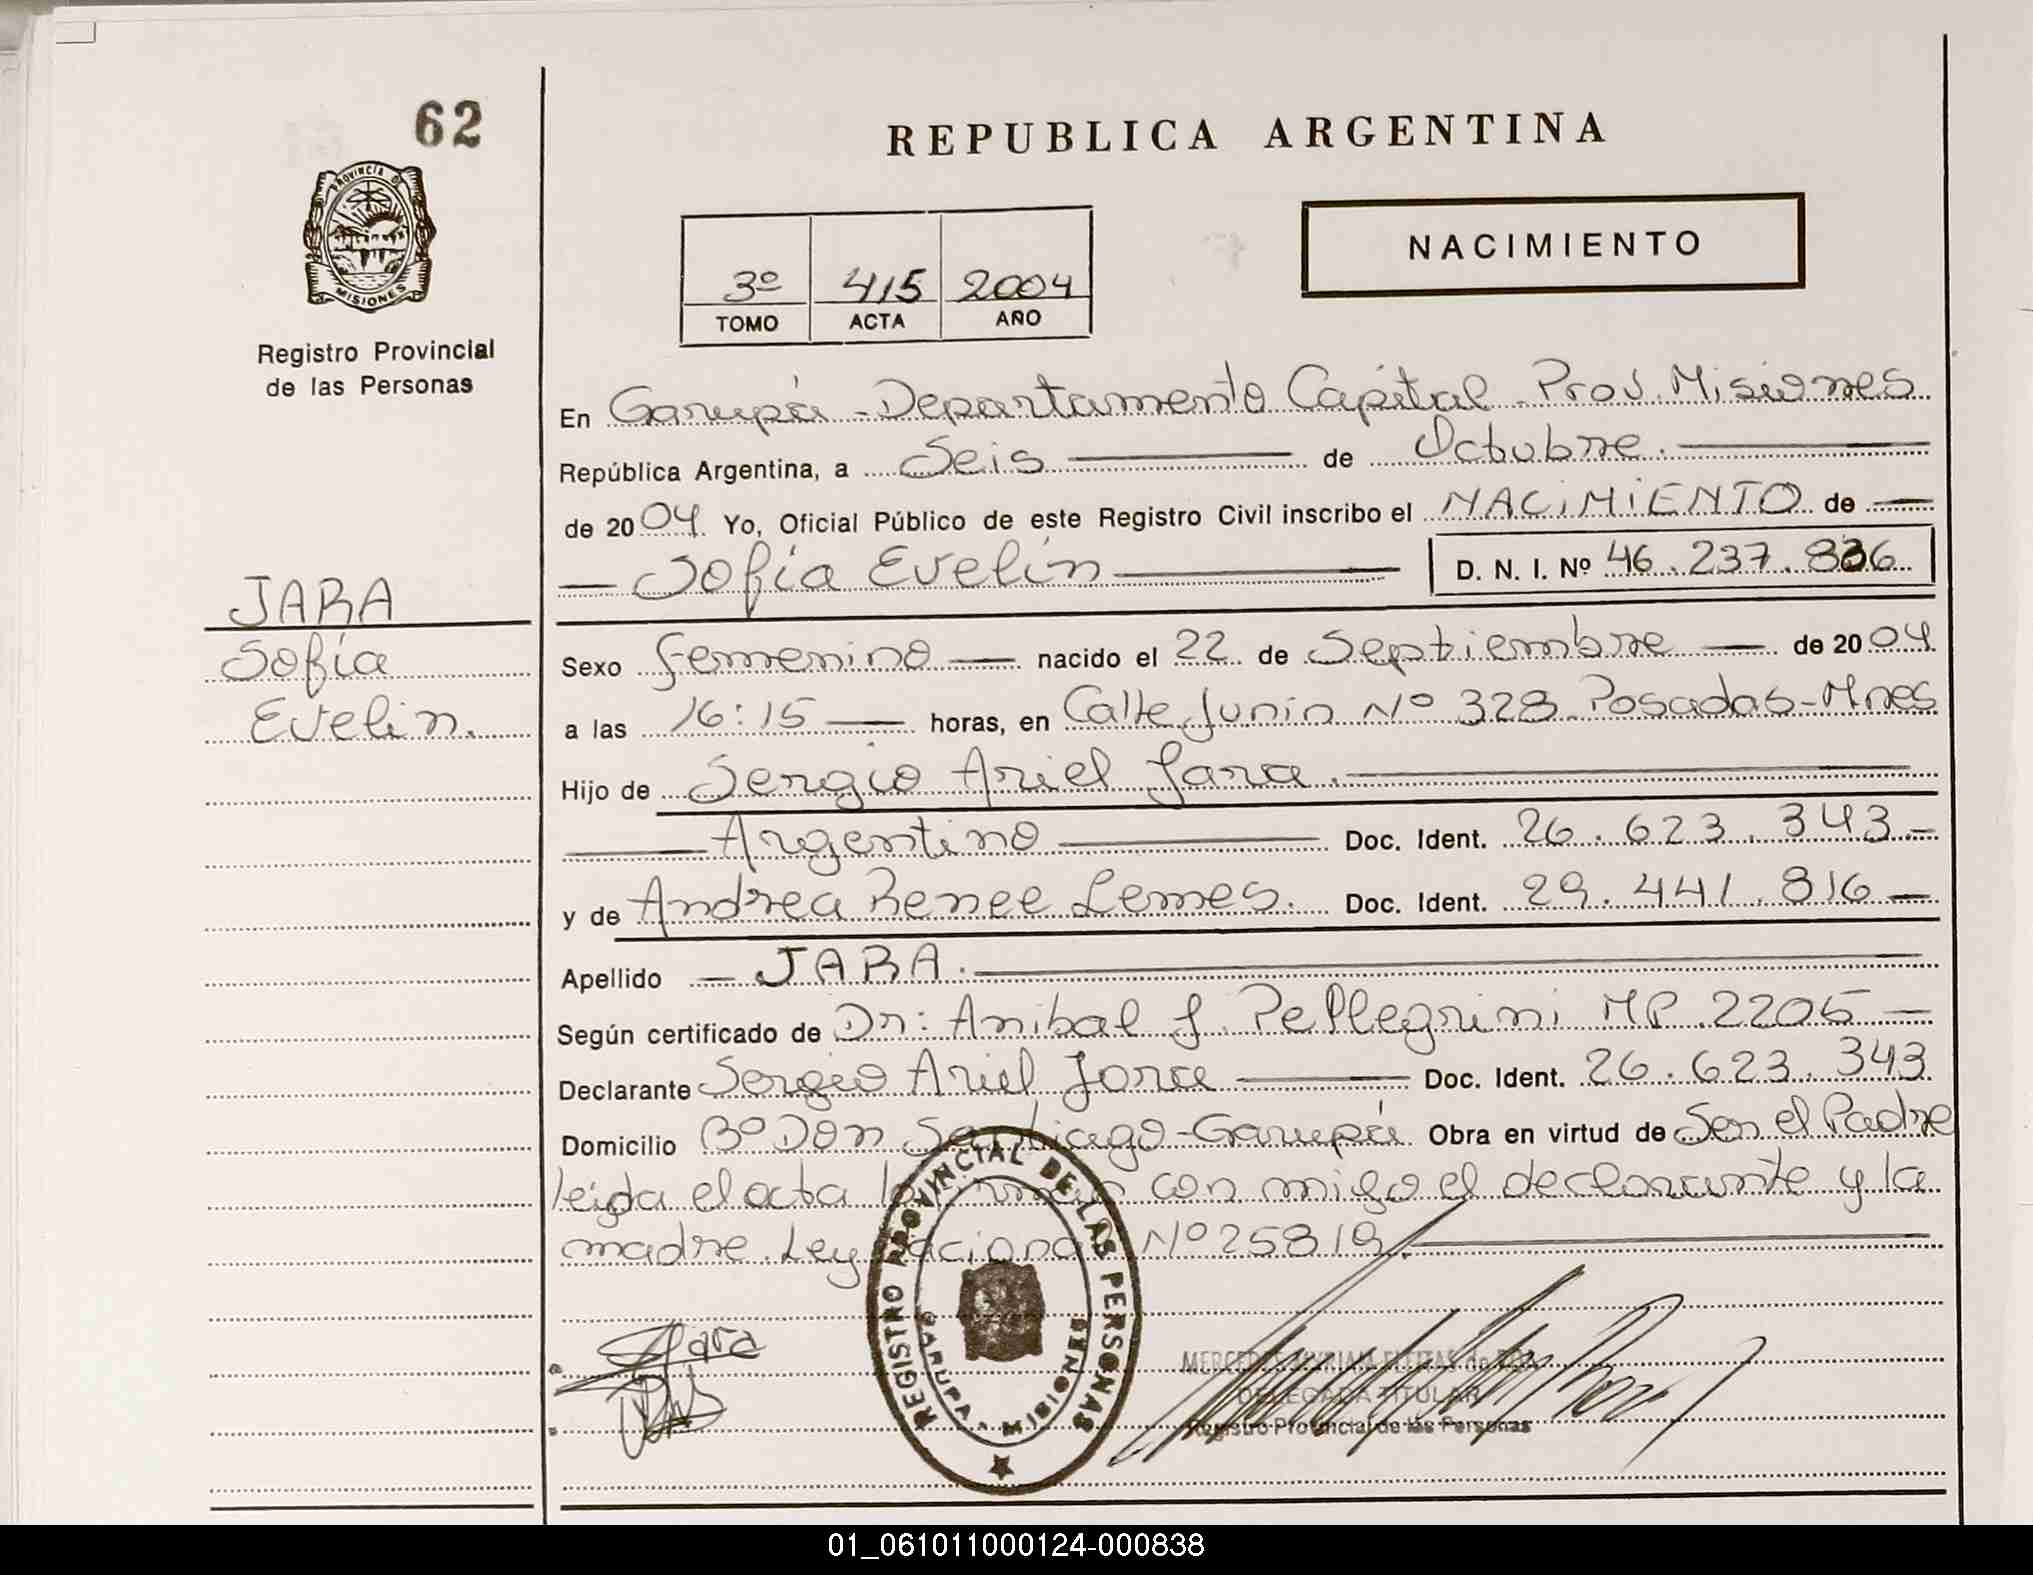 62
PROVINCIA DE
MISIONES
Registro Provincial
de las Personas
JARA
Sofía
Evelin.
REPUBLICA ARGENTINA
NACIMIENTO
3º 415 2004
TOMO ACTA AÑO
En Garupá - Departamento Capital - Prov. Misiones
República Argentina, a Seis de Octubre.
de 2004 Yo, Oficial Público de este Registro Civil inscribo el NACIMIENTO de
Sofía Evelin D. N. I. Nº 46.237.836
Sexo femenino nacido el 22 de Septiembre de 2004
a las 16:15 horas, en Calle Junin Nº 328 Posadas-Mnes
Hijo de Sergio Ariel Jara.
Argentino Doc. Ident. 26.623.343
y de Andrea Renee Lemes. Doc. Ident. 29.441.816
Apellido JARA.
Según certificado de Dr: Anibal J. Pellegrini MP. 2205
Declarante Sergio Ariel Jara Doc. Ident. 26.623.343
Domicilio Bº Don Santiago-Garupá Obra en virtud de Ser el Padre
leida el acta la con migo el declarante y la
madre. Ley Nacional Nº 25819.
Jara
REGISTRO PROVINCIAL DE LAS PERSONAS
GARUPA - MISIONES
DELEGADA TITULAR
Registro Provincial de las Personas
01_061011000124-000838